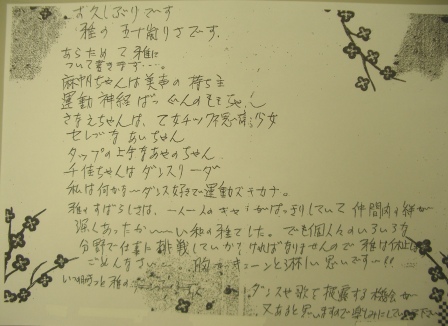 お久しぶりです
雅の
あらためて雅に
ついて書きます…。
麻帆ちゃんは美声の持ち主
運動神経ばつぐんの
ちゃんは、乙女チック 少女
セレブな あいちゃん
タップの上手なあやのちゃん
千佳ちゃんはダンスリーダー
私は何かな〜ダンス好きで運動
雅のすばらしさは、一人一人のキャラがはっきりしていて 仲間内の絆が
深くあったかーい 私の雅でした。でも個人々のいろいろな
分野で仕事に挑戦していかなければなりませんので 雅は
ごめんなさい… 胸がキューンと淋しい思いです…!!
いつの日かきっと雅の
ダンスや歌を披露する機会が
又なると思いますので楽しみにしていて下さい